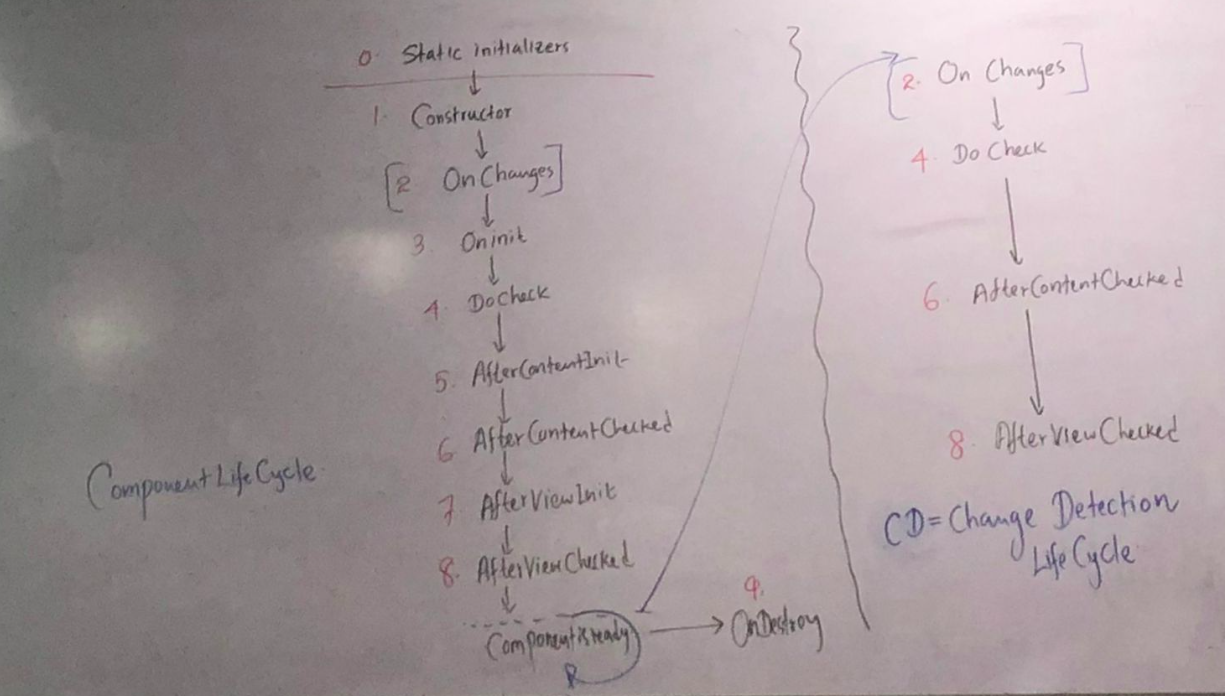 0. Static initializers
1. Constructor
[2 OnChanges]
3. Oninit
4. DoCheck
5. AfterContentInit
6 AfterContentChecked
7 AfterViewInit
8. AfterViewChecked
Component is ready
9.
OnDestroy
Component LifeCycle
[2. On Changes]
4. Do Check
6. AfterContentChecked
8. AfterViewChecked
CD = Change Detection
LifeCycle